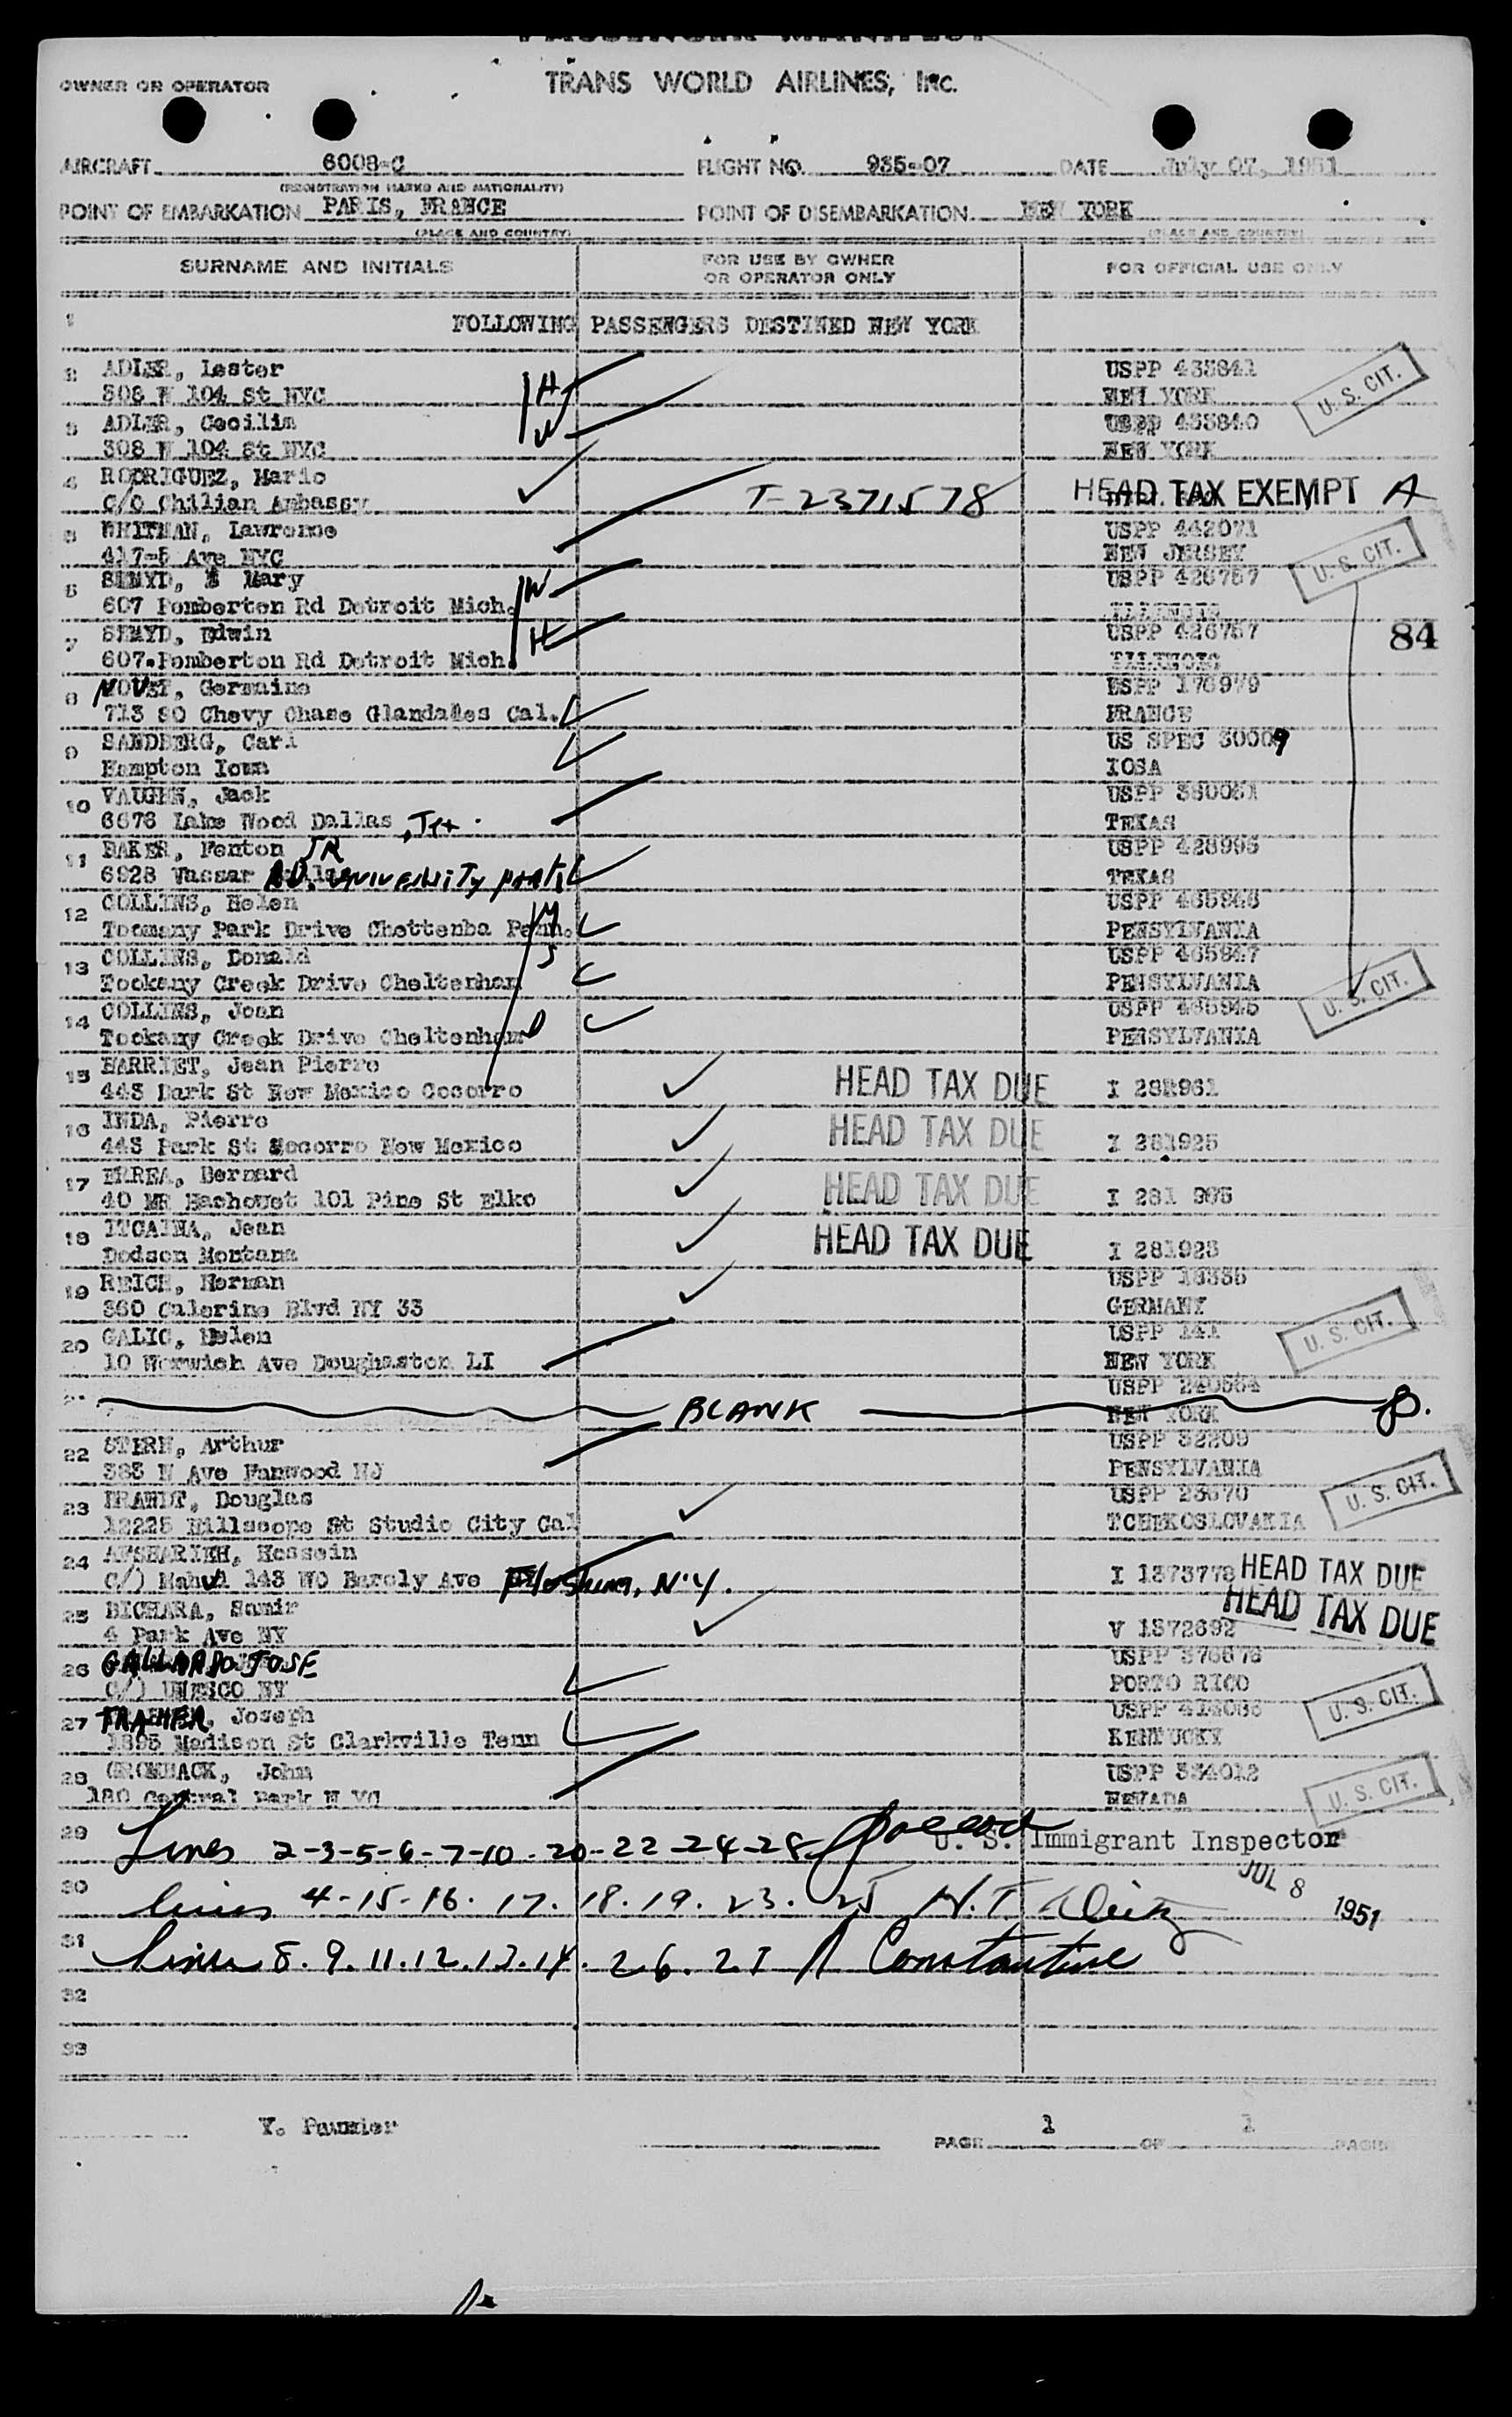 PASSENGER MANIFEST
OWNER OR OPERATOR TRANS WORLD AIRLINES, Inc.
AIRCRAFT 6008-C FLIGHT NO. 935-07 DATE July 07, 1951
(REGISTRATION MARKS AND NATIONALITY)
POINT OF EMBARKATION PARIS, FRANCE POINT OF DISEMBARKATION NEW YORK
(PLACE AND COUNTRY) (PLACE AND COUNTRY)
SURNAME AND INITIALS FOR USE BY OWNER OR OPERATOR ONLY FOR OFFICIAL USE ONLY
1 FOLLOWING PASSENGERS DESTINED NEW YORK
2 ADLER, Lester H USPP 433841 U. S. CIT.
308 W 104 St NYC NEW YORK
3 ADLER, Cecilia W USPP 433840
308 W 104 St NYC NEW YORK
4 RODRIGUEZ, Mario T-2371578 HEAD TAX EXEMPT A
C/O Chilian Ambassy
5 WHITMAN, Lawrence USPP 442071
417-5 Ave NYC NEW JERSEY U. S. CIT.
6 Mary W USPP 426757
607 Pomberton Rd Detroit Mich. ILLINOIS
7 Edwin H USPP 426757 84
607 Pomberton Rd Detroit Mich. ILLINOIS
8 Germaine USPP 176979
713 SO Chevy Chase Glandales Cal. FRANCE
9 SANDBERG, Carl US SPEC 30009
Hampton Iowa IOSA
10 VAUGHN, Jack USPP 380051
6676 Lake Wood Dallas, Tex. TEXAS
11 BAKER, Fenton JR USPP 428995
6928 Vassar RD. University park TEXAS
12 COLLINS, Helen M USPP 465946
Toomany Park Drive Chettenba Penn. PENSYLVANIA
13 COLLINS, Donald S USPP 465947
Tookany Creek Drive Cheltenham PENSYLVANIA U. S. CIT.
14 COLLINS, Joan D USPP 465945
Tookany Creek Drive Cheltenham PENSYLVANIA
15 BARRIET, Jean Pierre
443 Park St New Mexico Cocorro HEAD TAX DUE I 281961
16 INDA, Pierre HEAD TAX DUE
443 Park St Socorro New Mexico I 281925
17 ERREA, Bernard HEAD TAX DUE
40 MR Bachouet 101 Pine St Elko I 281 995
18 ITCAINA, Jean HEAD TAX DUE
Dodson Montana I 281923
19 REICH, Herman USPP 18335
360 Calorine Blvd NY 33 GERMANY
20 GALIC, Helen USPP 141 U. S. CIT.
10 Warwich Ave Doughaston LI NEW YORK
USPP 240564
BLANK NEW YORK
22 STERN, Arthur USPP 32209
383 N Ave Fanwood NJ PENSYLVANIA
23 BRANDT, Douglas USPP 23670 U. S. CIT.
12225 Hillscope St Studio City Cal TCHEKOSLOVAKIA
24 AFSHARIEH, Hossein
C/) 143 WO Barcly Ave Flushing, N.Y. I 1373778 HEAD TAX DUE
25 BICHARA, Samir HEAD TAX DUE
4 Park Ave NY V 1372692
26 GALLARDO, JOSE USPP 376678
C/) UNESCO NY PORTO RICO U. S. CIT.
27 TRAHER, Joseph USPP
1895 Madison St Clarkville Tenn KENTUCKY
28 GROMBACK, John USPP 334012
180 Central Park NEVADA U. S. CIT.
29 Lines 2-3-5-6-7-10-20-22-24-28 U. S. Immigrant Inspector
30 lines 4-15-16. 17. 18. 19. 23. 25 JUL 8 1951
31 lines 8. 9. 11. 12. 13. 14. 26. 27 Constantine
32
33
PAGE 1 OF 1 PAGES